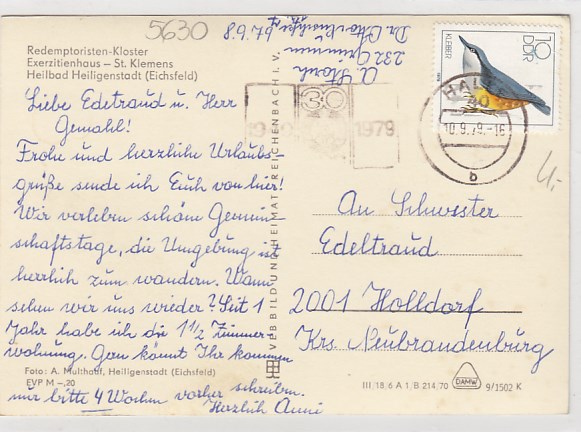 5630
Redemptoristen-Kloster
Exerzitienhaus — St. Klemens
Heilbad Heiligenstadt (Eichsfeld)
Liebe Edeltraud u. Herr
Gemahl!
Frohe und herzliche Urlaubs-
grüße sende ich Euch von hier!
Wir verleben schöne Gemein-
schaftstage, die Umgebung ist
herrlich zum wandern. Wann
sehen wir uns wieder? Seit 1
Jahr habe ich die 1 1/2 Zimmer-
wohnung. Gern könnt Ihr kommen
Foto: A. Multhauf, Heiligenstadt (Eichsfeld)
EVP M –,20
nur bitte 4 Wochen vorher schreiben.
Herzlich Anni
VEB BILD UND HEIMAT REICHENBACH I. V.
A. Storh
232 Grimmen
30
1979
KLEIBER
10
DDR
HALLE
10.9.79.-16
b
4,-
An Schwester
Edeltraud
2001 Holldorf
Krs. Neubrandenburg
III/18/6 A 1/B 214/70
DAMW
9/1502 K